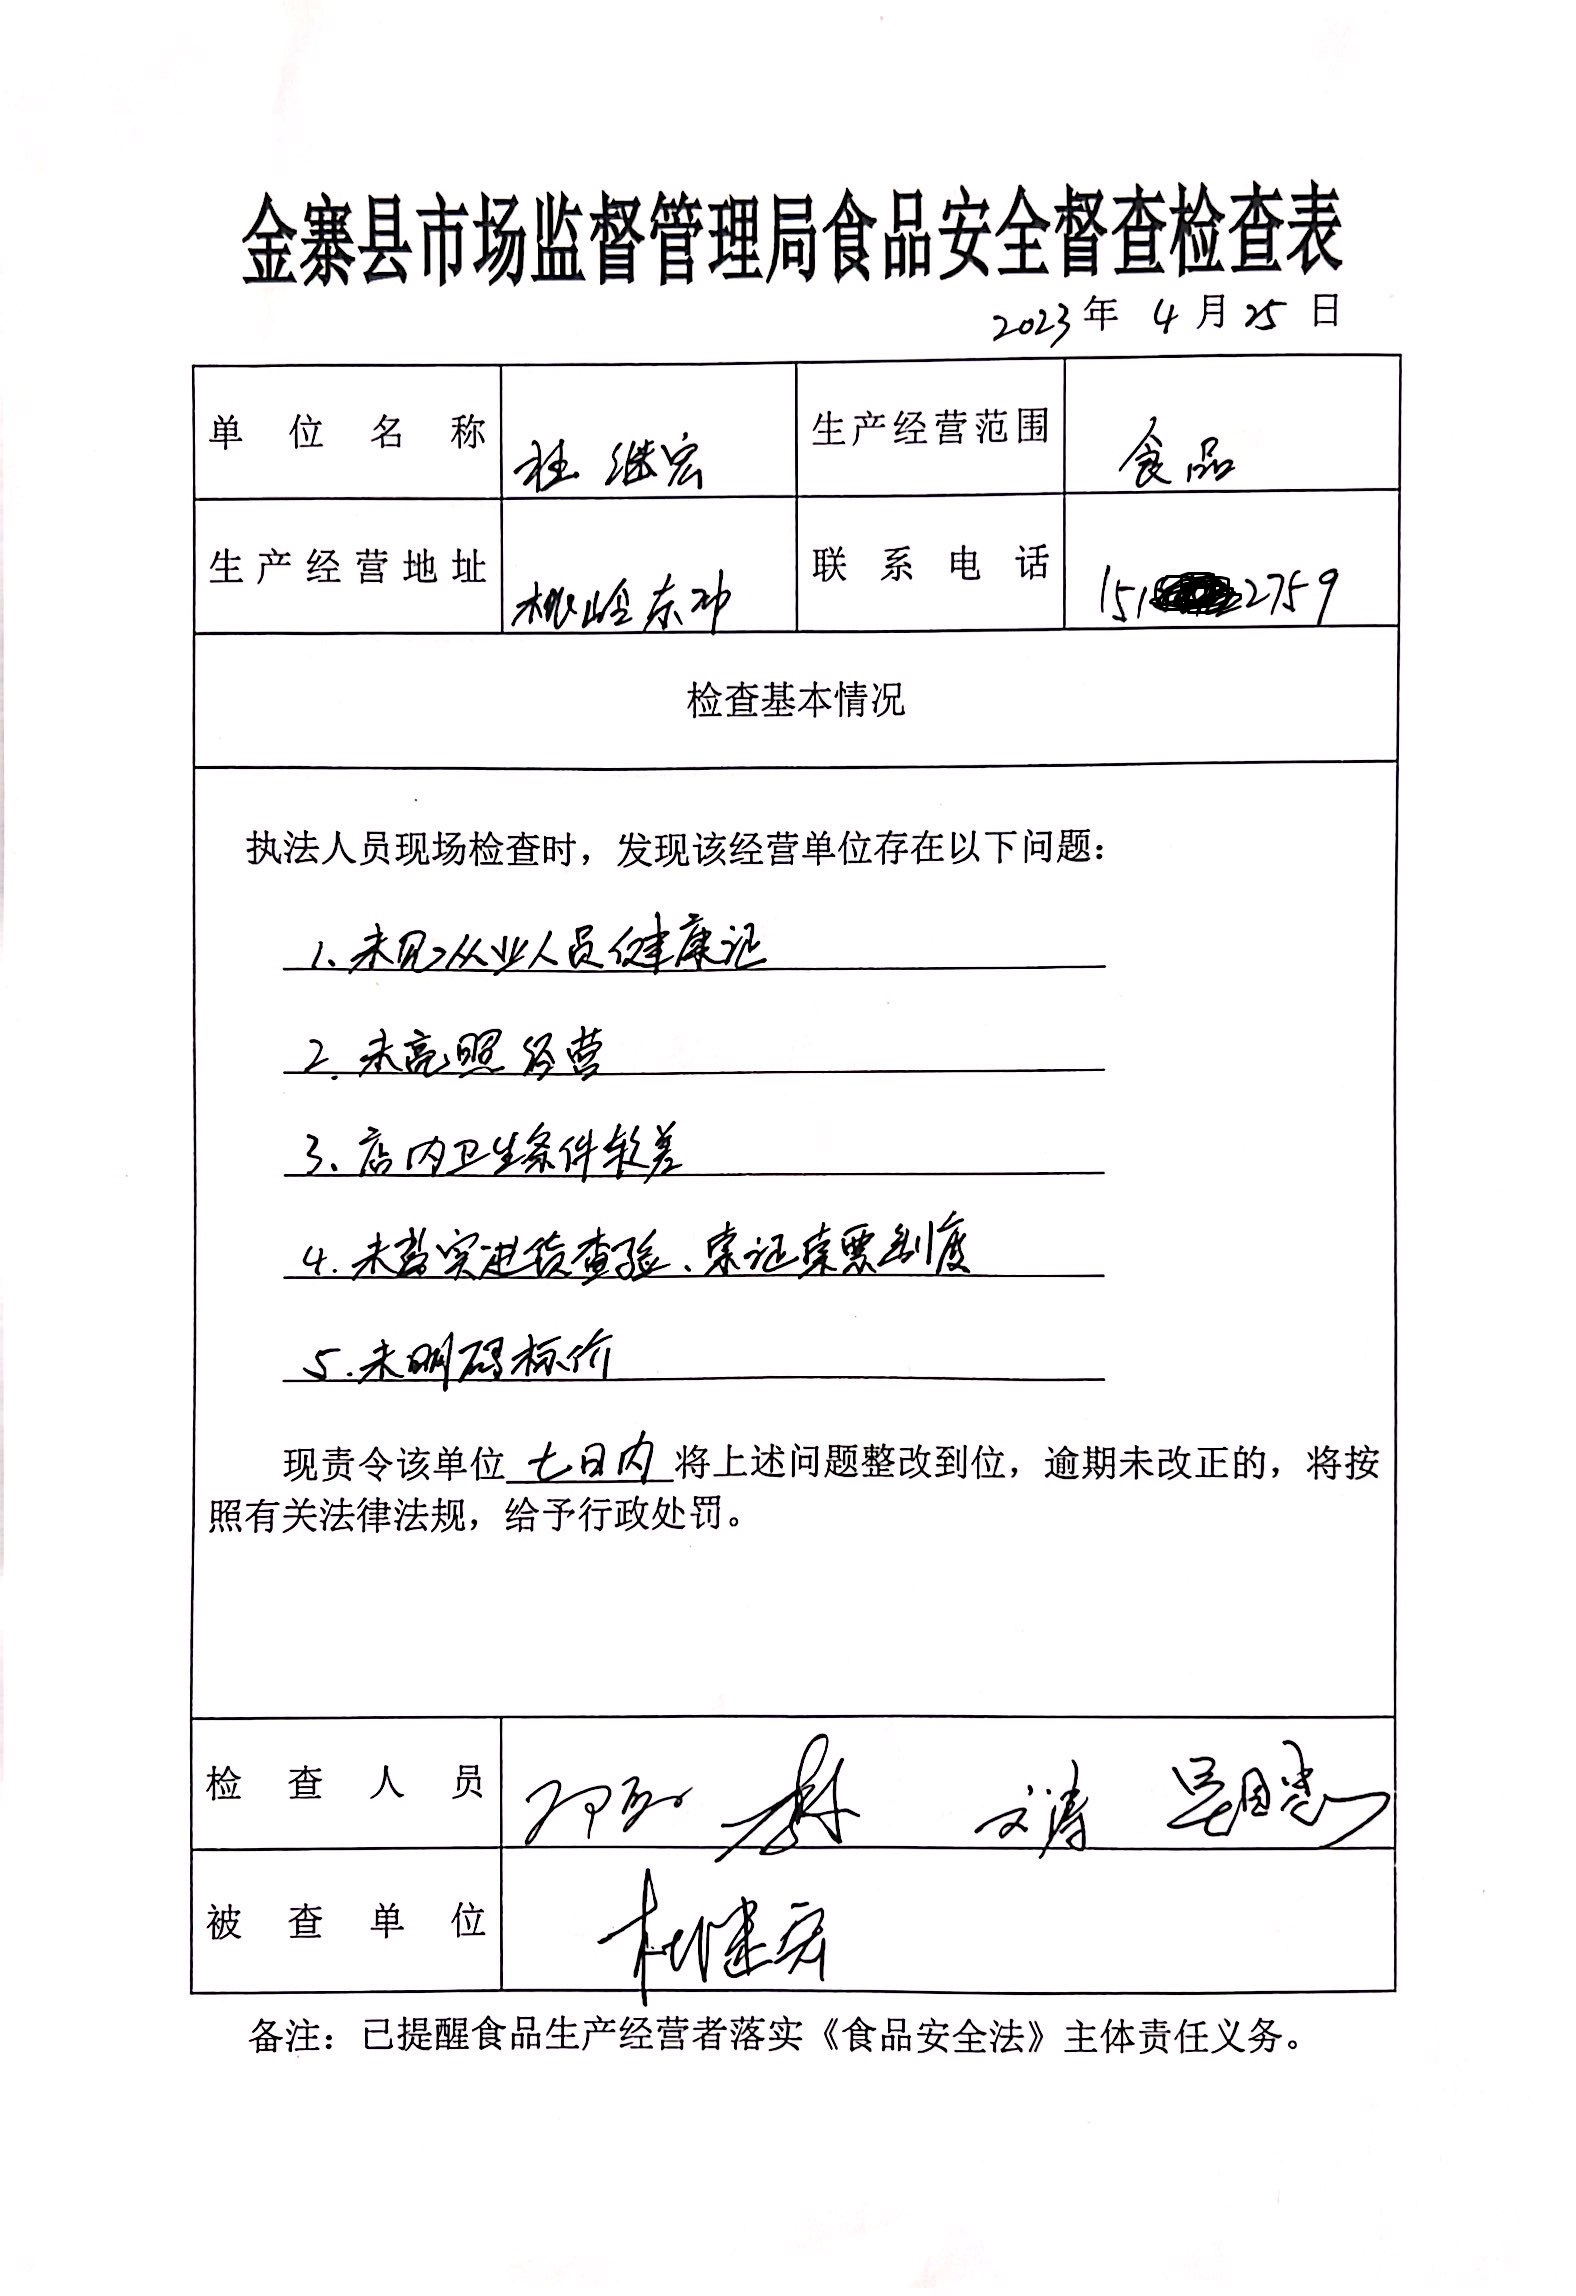 金寨县市场监督管理局食品安全督查检查表
2023年 4月25日
单位名称 杜继宏 生产经营范围 食品
生产经营地址 桃岭东冲 联系电话 151 2759
检查基本情况
执法人员现场检查时，发现该经营单位存在以下问题：
1、未见从业人员健康证
2.未亮照经营
3、店内卫生条件较差
4.未落实进货查验、索证索票制度
5.未明码标价
现责令该单位七日内将上述问题整改到位，逾期未改正的，将按
照有关法律法规，给予行政处罚。
检查人员 文涛
被查单位 杜继宏
备注：已提醒食品生产经营者落实《食品安全法》主体责任义务。